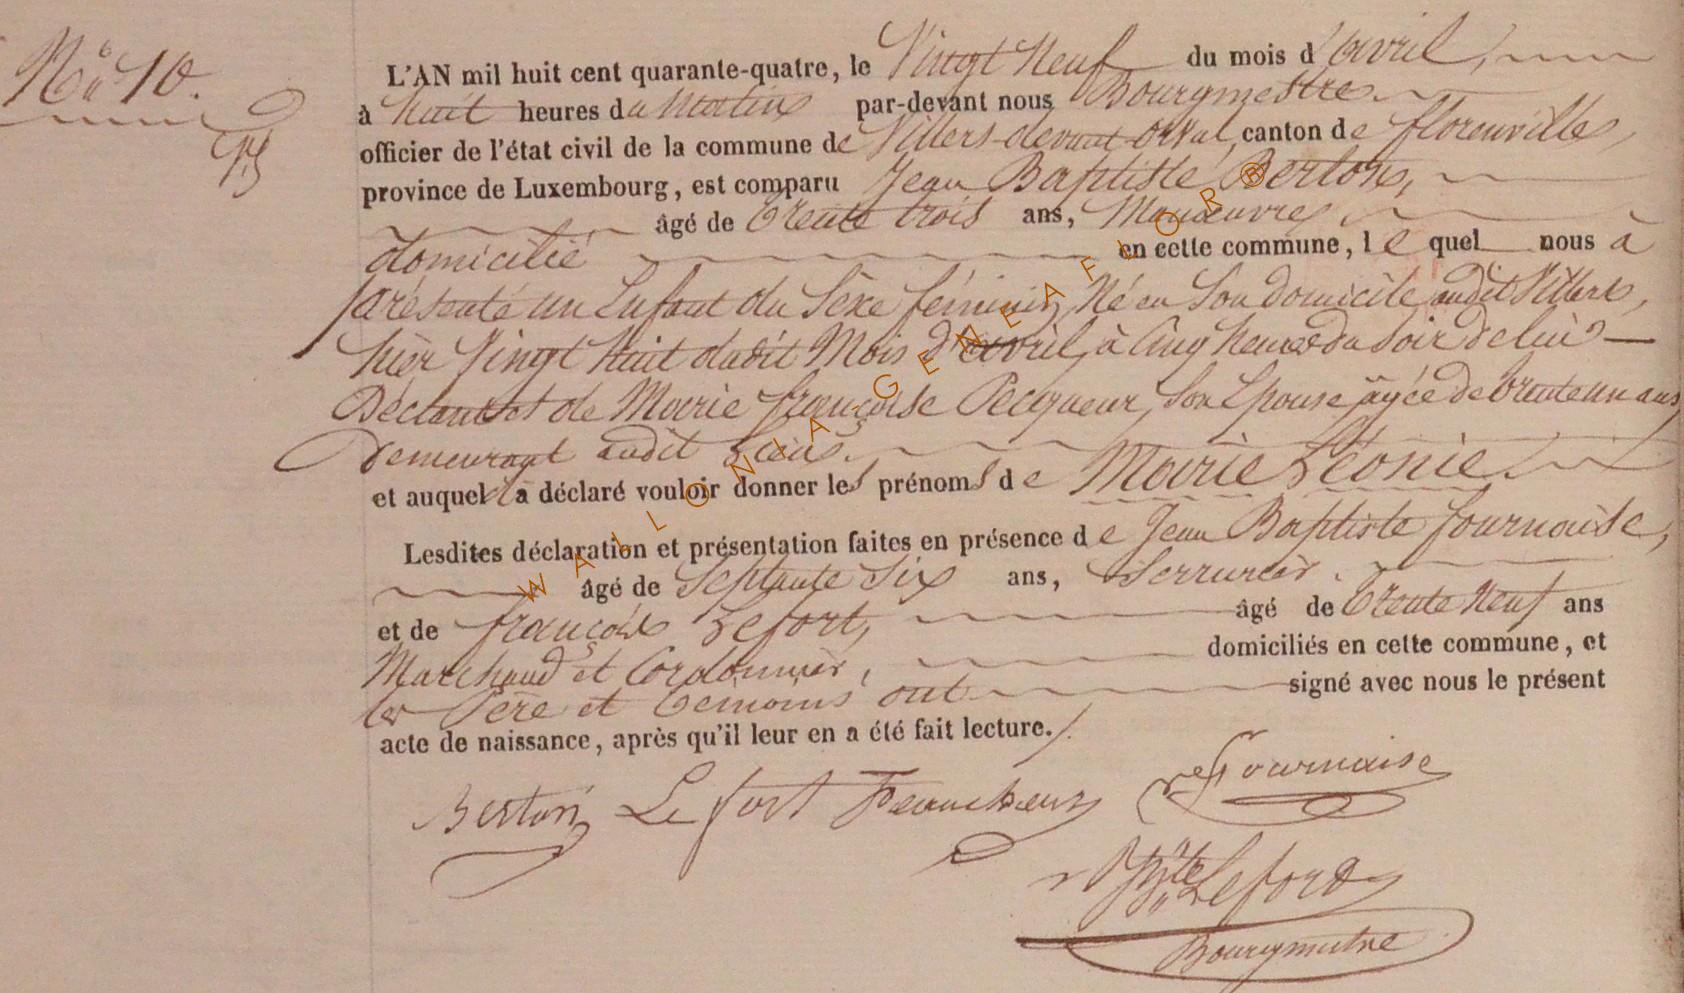 N° 10.
L'AN mil huit cent quarante-quatre, le Vingt Neuf du mois d'avril,
à huit heures du Matin par-devant nous Bourgmestre
officier de l'état civil de la commune de Villers-devant-Orval, canton de florenville,
province de Luxembourg, est comparu Jean Baptiste Berton,
âgé de trente trois ans, Manœuvre,
domicilié en cette commune, lequel nous à
présenté un Enfant du Sexe féminin, Né en Son domicile audit Villers,
hier Vingt huit dudit Mois d'avril, à Cinq heures du Soir de lui
Déclarant et de Marie françoise Pecqueur, Son Epouse âgée de trente un ans
demeurant audit Lieu.
et auquel il a déclaré vouloir donner les prénoms de Marie Léonie.
Lesdites déclaration et présentation faites en présence de Jean Baptiste fournaise,
âgé de Septante Six ans, Serrurier.
et de françois Lefort, âgé de trente Neuf ans
Marchand et Cordonnier, domiciliés en cette commune, et
les Père et témoins ont signé avec nous le présent
acte de naissance, après qu'il leur en a été fait lecture./.
Berton Lefort Fournaise
Lefort
Bourgmestre
WALLONIA-GENEAFLOR®